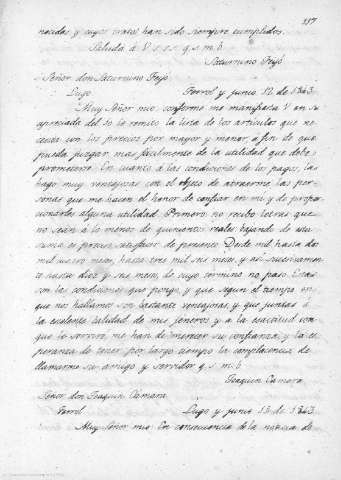 117
nocidas y cuyos tratos han sido siempre cumplidos.
Saluda á V. s. s. s. q. s. m. b.
Saturnino Feyjó
Señor don Saturnino Feyjó
Lugo Ferrol y junio 12 de 1843
Muy Señor mio: conforme me manifiesta V en su
apreciada del 10 le remito la lista de los articulos que ne
cesita con los precios por mayor y menor, a fin de que
pueda juzgar mas facilmente de la utilidad que debe
prometerse. En cuanto á las condiciones de los pagos, las
hago muy ventajosas con el objeto de atraerme las per-
sonas que me hacen el honor de confiar en mi y de propor
cionarles alguna utilidad. Primero: no recibo letras que
no sean á lo menos de quinientos reales bajando de esta
suma es preciso satisfacer de presente. Desde mil hasta dos
mil un mes, hasta tres mil seis meses, y asi sucesivamen
te hasta diez y seis meses, de cuyo termino no paso. Estas
son las condiciones que pongo, y que segun el tiempo en
que nos hallamos son bastante ventajosas, y que juntas á
la escelente calidad de mis jeneros y a la esactitud con
que le serviré, me han de merecer su confianza, y la es
peranza de tener por largo tiempo la complacencia de
llamarme su amigo y servidor q. s. m. b.
Joaquin Zamora
Señor don Joaquin Zamora
Ferrol Lugo y junio 13 de 1843
Muy Señor mio: En consecuencia de la noticia de